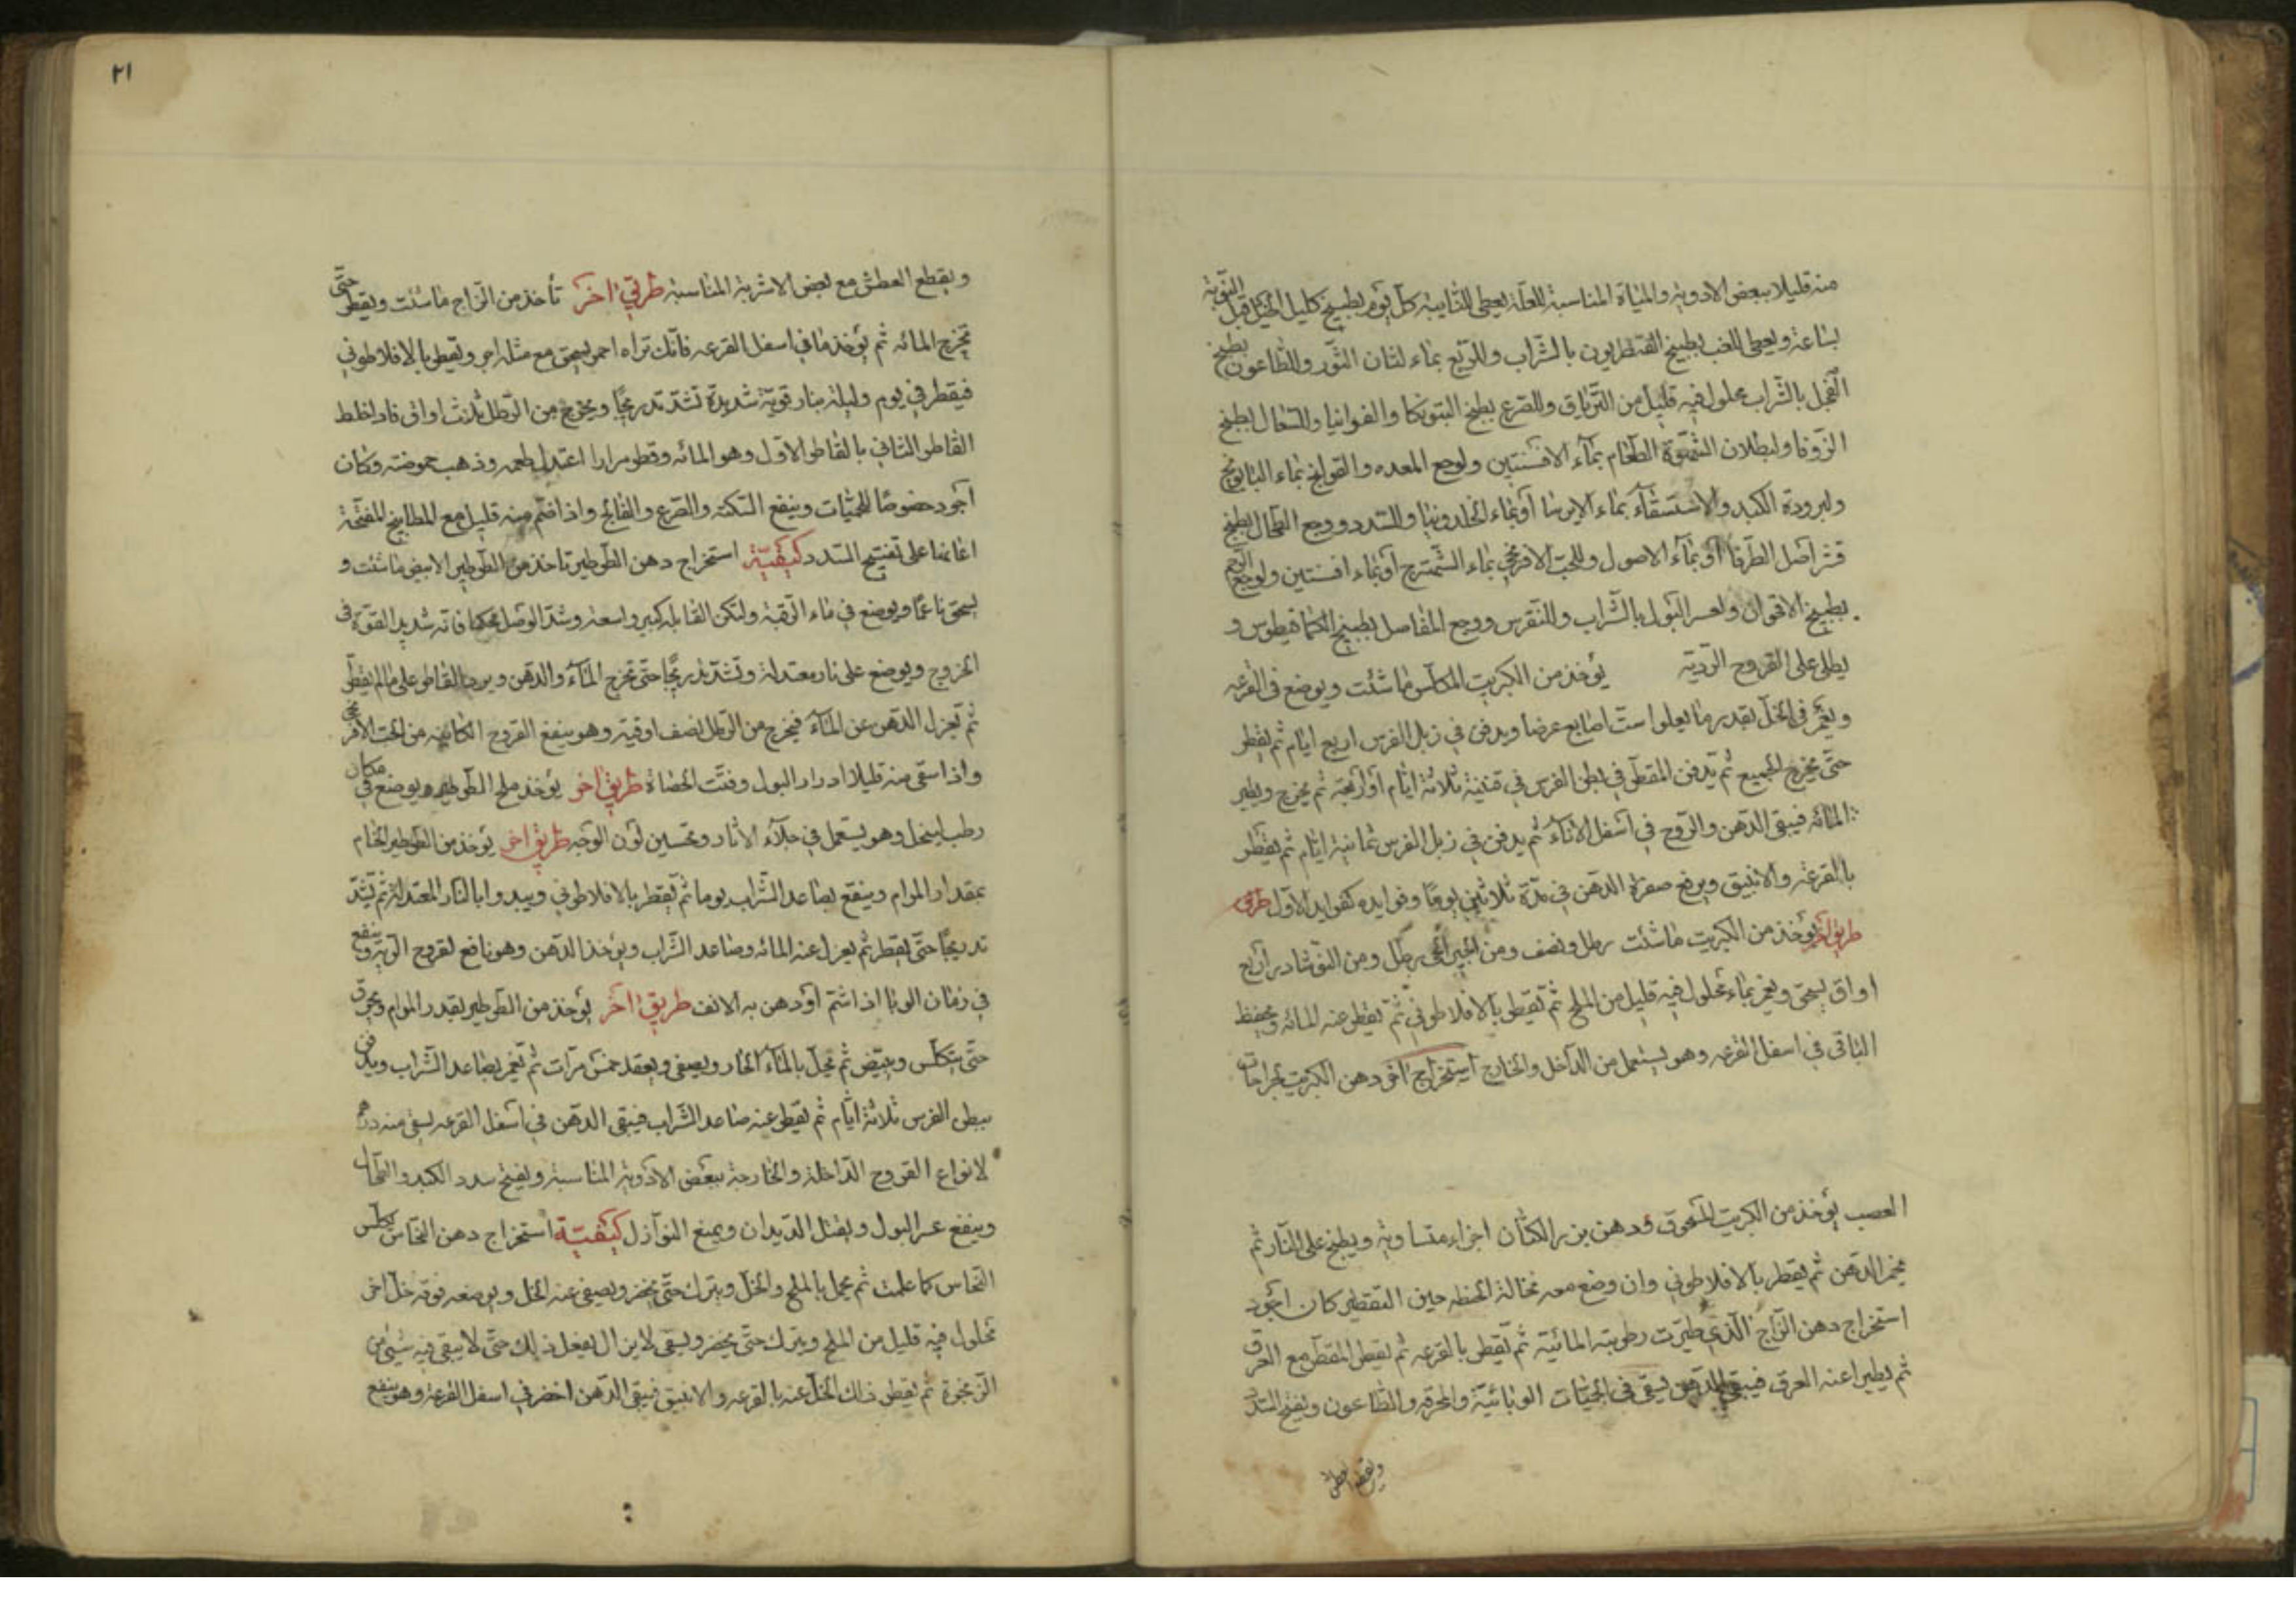 منه قليلا ببعض الادوية والمياة المناسبة للعلة يعطى للنائبة كل يوم بطبيخ كليل الجبل قبل النوبة
بساعة ويعطى للغب بطبيخ القنطريون بالشراب وللربع بماء لسان الثور وللطاعون بطبيخ
الفجل بالشراب محلول فيه قليل من الترياق وللصرع بطبخ البتونكا والفوانيا وللسعال بطبخ
الزوفا ولبطلان الشهوة الطعام بماء الافسنتين ولوجع المعده والقولنج بماء البابونج
ولبرودة الكبد والاستسقاء بماء الايرسا أو بماء الخلدونيا وللسدد ووجع الطحال بطبخ
قشر أصل الطرفا أو بماء الاصول وللحب الافرنجي بماء الشهترج أو بماء افسنتين ولوجع الرحم
بطبيخ الاقحوان ولعسر البول بالشراب وللنقرس ووجع المفاصل بطبيخ الكمافيطوس و
يطلى على القروح الردية يؤخذ من الكبريت المكلس ما شئت ويوضع في القرعه
ويغمر في الخل بقدر ما يعلوا ست اصابع عرضا ويدفن في زبل الفرس اربع ايام ثم يقطر
حتى يخرج الجميع ثم يدفن المقطر في بطن الفرس في قنينة ثلاثة ايام أو أربعة ثم يخرج ويطير
المائه فيبقى الدهن والروح في أسفل الاناء ثم يدفن في زبل الفرس ثمانية ايام ثم يقطر
بالقرعة والانبيق ويرفع صفرة الدهن في مدة ثلاثين يوما وفوايده كفوايد الاول طريق
طريق آخر يؤخذ من الكبريت ما شئت رطل ونصف ومن الجير الحي رطل ومن النوشادر أربع
اواق يسحق ويغمر بماء محلول فيه قليل من الملح ثم يقطر بالافلاطوني ثم يقطر عنه المائه ويحفظ
الباقي في اسفل القرعه وهو يستعمل من الداخل والخارج استخراج اخر دهن الكبريت لجراحات
العصب يؤخذ من الكبريت المسحوق ودهن بزر الكتان اجزاء متساوية ويطبخ على النار ثم
يخمر الدهن ثم يقطر بالافلاطوني وان وضع معه نخالة الحنطه حين التقطير كان اجود
استخراج دهن الزاج الذي طيرت رطوبته المائية ثم يقطر بالقرعه ثم يقطر المقطر مع العرق
ثم يطير اعنه العرق فيبقى الدهن يسقى في الحميات الوبائية والمحرقه والطاعون ويفتح السدد
ويقطع العطش
٢١
ويقطع العطش مع بعض الاشربة المناسبة طريق اخر تأخذ من الزاج ما شئت ويقطر حتى
تخرج المائه ثم يؤخذ ما في اسفل القرعه فانك تراه احمر يسحق مع مثله اجر ويقطر بالافلاطوني
فيقطر في يوم وليلة بنار قوية شديدة تشتد تدريجا ويخرج من الرطل ثلاث اواق فاذا خلط
القاطر الثاني بالقاطر الاول وهو المائه وقطر مرارا اعتدل طعمه وذهب حموضته وكان
أجود خصوصا للحميات وينفع السكته والصرع والفالج واذا ضم منه قليل مع المطابيخ المفتحة
اعانها على تفتيح السدد كيفية استخراج دهن الطرطير تاخذ من الطرطير الابيض ما شئت و
يسحق ناعما ويوضع في ماء الرقبة ولتكن القابله كبير واسعة وشد الوصل محكما فانه شديد القوة في
الخروج ويوضع على نار معتدلة وتشتد تدريجا حتى تخرج الماء والدهن ويرد القاطر على ما لم يقطر
ثم تعزل الدهن عن الماء فيخرج من الرطل نصف اوقية وهو ينفع القروح الكاينه من الحب الافرنجي
واذا سقى منه قليلا ادرار البول وفتت الحصاة طريق اخر يؤخذ ملح الطرطير ويوضع في مكان
رطب لينحل وهو يستعمل في جلاء الاثار وتحسين لون الوجه طريق اخر يؤخذ من الطرطير الخام
بمقدار المرام وينقع بصاعد الشراب يوما ثم يقطر بالافلاطوني ويبدوا بالنار المعتدلة ثم تشتد
تدريجا حتى يقطر ثم يعزل عنه المائه وصاعد الشراب ويؤخذ الدهن وهو نافع لقروح الرية وينفع
في زمان الوبا اذا شم أو دهن به الانف طريق اخر يؤخذ من الطرطير بقدر المرام ويحرق
حتى يتكلس ويبيض ثم يحل بالماء الحار ويصفى ويعقد خمس مرات ثم يغمر بصاعد الشراب ويدفن
ببطن الفرس ثلاثة ايام ثم يقطر عنه صاعد الشراب فيبقى الدهن في أسفل القرعه يسقى منه درهم
لانواع القروح الداخلة والخارجة ببعض الادوية المناسبة ويفتح سدد الكبد والطحال
وينفع عسر البول ويقتل الديدان ويمنع النوازل كيفية استخراج دهن النحاس يكلس
النحاس كما علمت ثم يحل بالملح والخل ويترك حتى يخضر ويصفى عنه الخل ويوضع فوقه خل اخر
محلول فيه قليل من الملح ويترك حتى يخضر ويسقى لا يزال يفعل ذلك حتى لا يبقى فيه شيء من
الزنجرة ثم يقطر ذلك الخل عنه بالقرعه والانبيق فيبقى الدهن اخضر في اسفل القرعة وهو ينفع